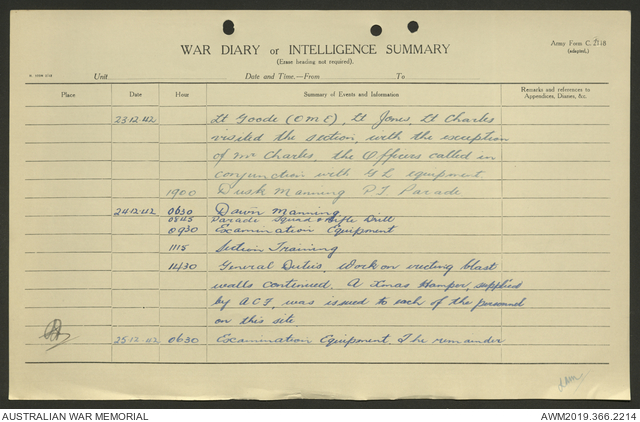 Army Form C. 2118
(adapted.)
WAR DIARY or INTELLIGENCE SUMMARY
(Erase heading not required).
Unit Date and Time.—From To
Place Date Hour Summary of Events and Information Remarks and references to
Appendices, Diaries, &c.
23.12.42 Lt Goode (OME), Lt Jones, Lt Charles
visited the section, with the exception
of Mr Charles, the Officers called in
conjunction with GL equipment.
1900 Dusk Manning PT Parade
24.12.42 0630 Dawn Manning
0845 Parade Squad & Rifle Drill
0930 Examination Equipment
1115 Section Training
1430 General Duties, Work on blast
walls continued. A Xmas Hamper, supplied
by ACF, was issued to each of the personnel
on this site.
25.12.42 0630 Examination Equipment. The remainder
AUSTRALIAN WAR MEMORIAL AWM2019.366.2214